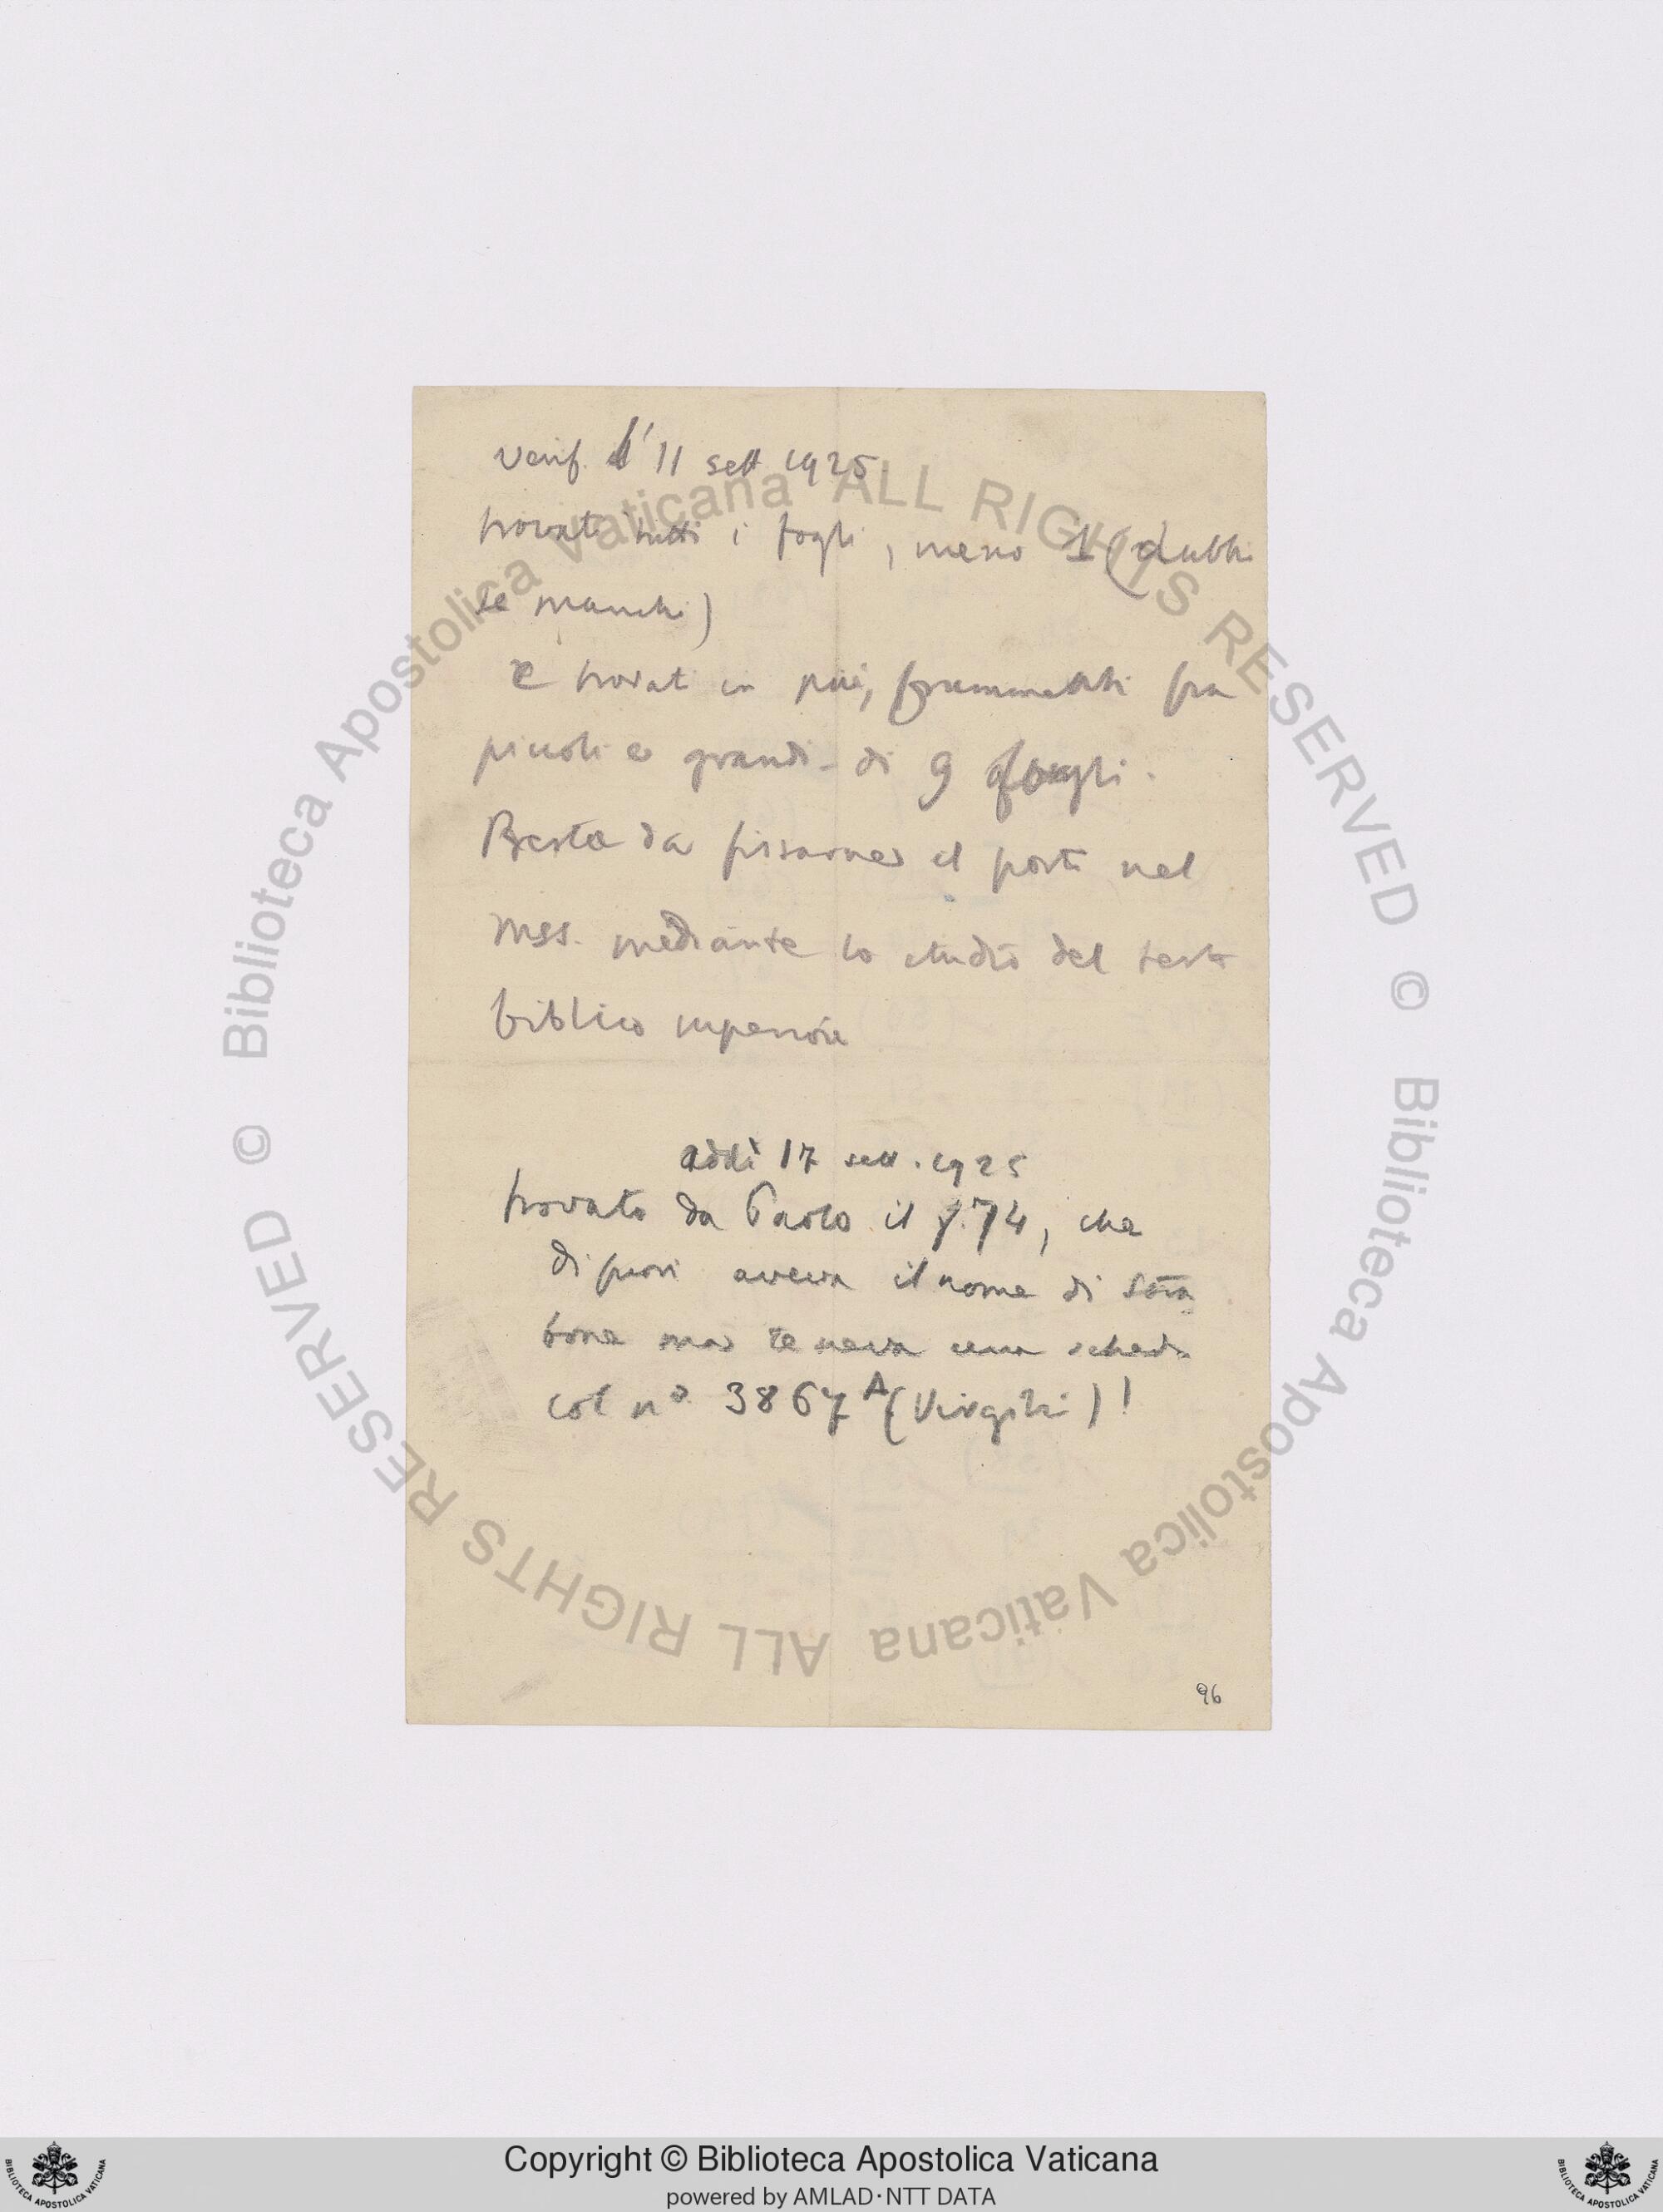 verif. l'11 sett 1925.
trovati tutti i fogli, meno 1 (dubbi
se manchi)
e trovati in più, frammenti fra
piccoli e grandi di 9 fogli.
Resta da fissarne il posto nel
mss. mediante lo studio del testo
biblico superiore
addì 17 sett. 1925
trovato da Paolo il f. 74, che
di fuori aveva il nome di Stra
bone ma teneva una scheda
col nº 3867 A (Virgilio)!
96
© Biblioteca Apostolica Vaticana ALL RIGHTS RESERVED
© Biblioteca Apostolica Vaticana ALL RIGHTS RESERVED
BIBLIOTECA APOSTOLICA VATICANA
Copyright © Biblioteca Apostolica Vaticana
powered by AMLAD·NTT DATA
BIBLIOTECA APOSTOLICA VATICANA